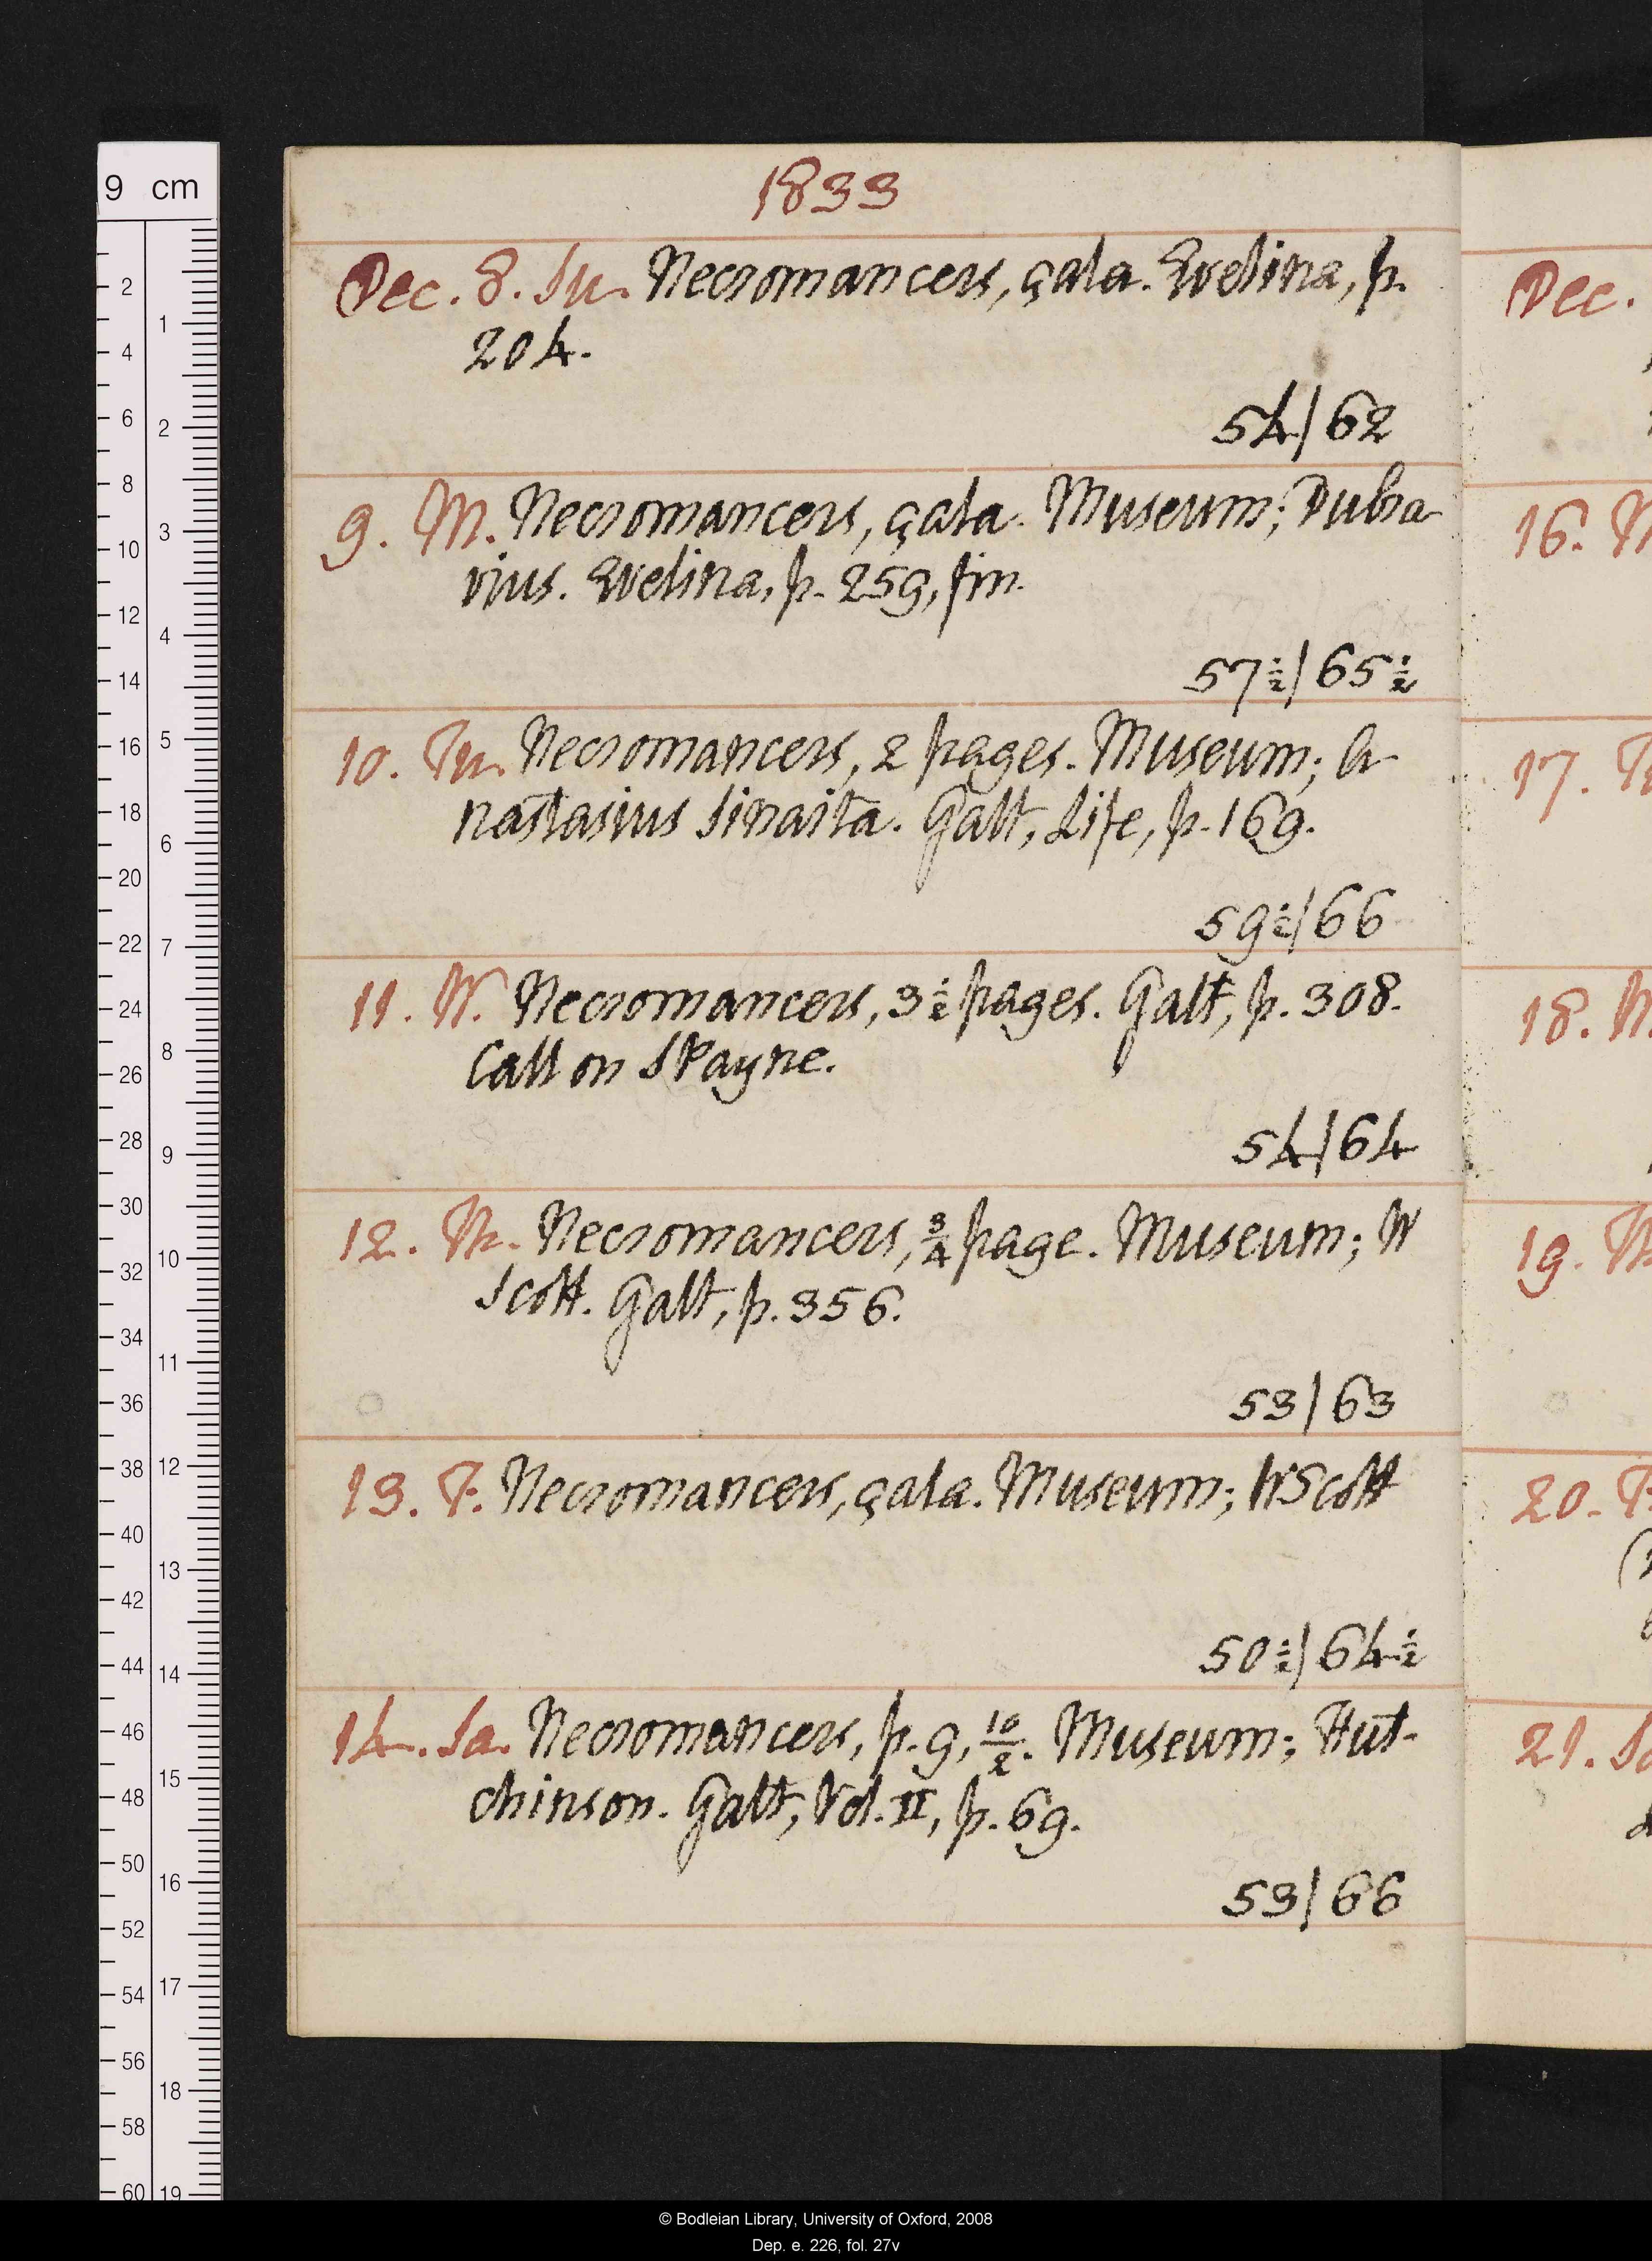 9 cm
1833
Dec. 8. Su. Necromancers, çala. Evelina, p.
204.
54/62
9. M. Necromancers, çala. Museum; Dubra-
vius. Evelina, p. 259, fin.
57½/65½
10. Tu. Necromancers, 2 pages. Museum; A-
nastasius Sinaita. Galt, Life, p. 169.
59½/66
11. W. Necromancers, 3½ pages. Galt, p. 308.
Call on SPayne.
54/64
12. Th. Necromancers, ¾ page. Museum; W
Scott. Galt, p. 356.
53/63
13. F. Necromancers, çala. Museum; WScott
50½/64½
14. Sa. Necromancers, p. 9, 10/2. Museum; Hut-
chinson. Galt, Vol. II, p. 69.
53/66
Dec.
16. M
17. Tu
18.
19. Th
20. F.
21. Sa
© Bodleian Library, University of Oxford, 2008
Dep. e. 226, fol. 27v